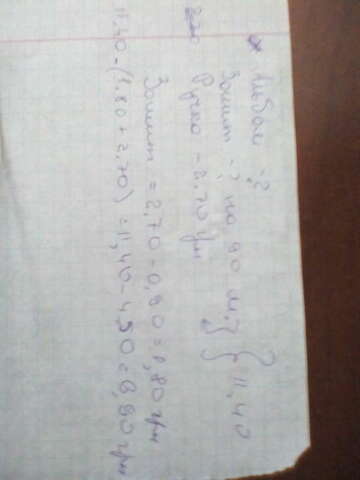 Альбом - ?
Зошит - ?, на 90 м. } 11,40
Ручка - 2,70 грн
Зошит = 2,70 - 0,90 = 1,80 грн
11,40 - (1,80 + 2,70) = 11,40 - 4,50 = 6,90 грн